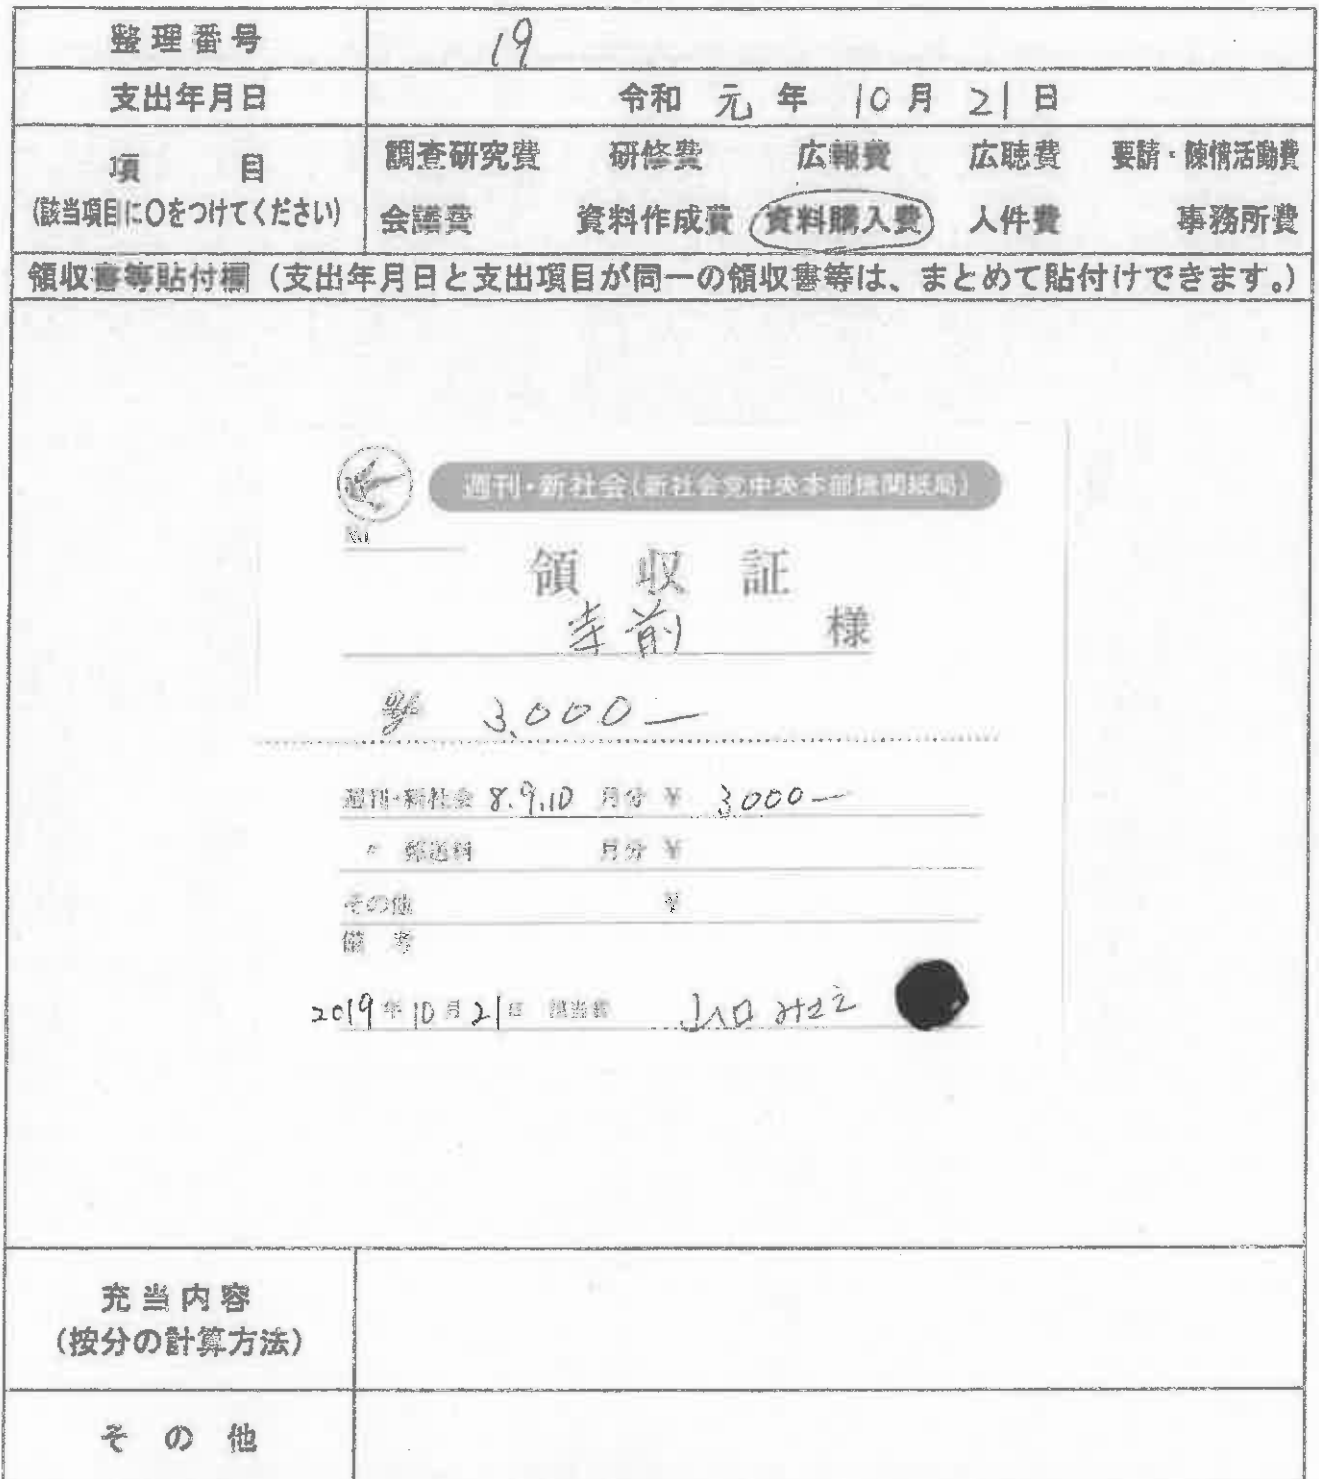 整理番号 19
支出年月日 令和 元 年 10 月 21 日
項目 調査研究費 研修費 広報費 広聴費 要請・陳情活動費
(該当項目に〇をつけてください) 会議費 資料作成費 資料購入費 人件費 事務所費
領収書等貼付欄(支出年月日と支出項目が同一の領収書等は、まとめて貼付けできます。)
週刊・新社会(新社会党中央本部機関紙局)
No.
領収証
寺前 様
3,000—
週刊・新社会 8.9.10 月分 ¥ 3000—
〃 郵送料 月分 ¥
その他 ¥
備考
2019年10月21日 担当者 山口
充当内容
(按分の計算方法)
その他